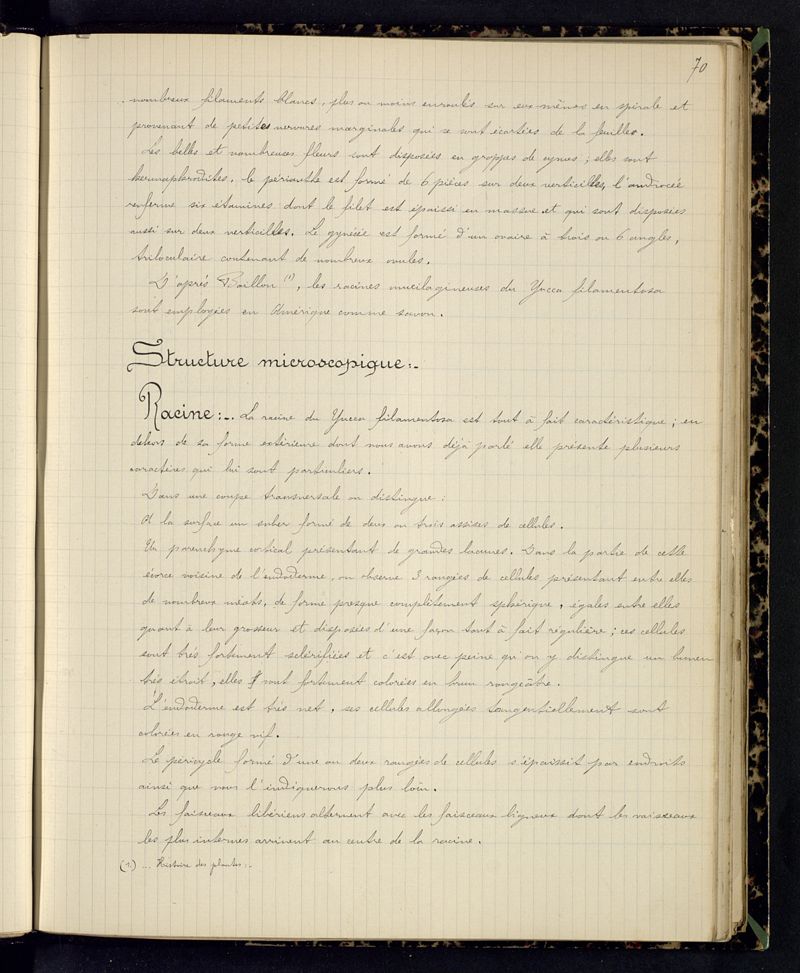 70
nombreux filaments blancs, plus ou moins enroulés sur eux-mêmes en spirale et
provenant de petites nervures marginales qui se sont écartées de la feuilles.
Les belles et nombreuses fleurs sont disposées en grappes de cymes ; elles sont
hermaphrodites. le périanthe est formé de 6 pièces sur deux verticilles, l'androcée
renferme six étamines dont le filet est épaissi en massue et qui sont disposées
aussi sur deux verticilles. Le gynécée est formé d'un ovaire à trois ou 6 angles,
triloculaire contenant de nombreux ovules.
D'après Baillon (1), les racines mucilagineuses du Yucca filamentosa
sont employées en Amérique comme savon.
Structure microscopique :-
Racine :-. La racine du Yucca filamentosa est tout à fait caractéristique ; en
dehors de sa forme extérieure dont nous avons déjà parlé elle présente plusieurs
caractères qui lui sont particuliers.
Dans une coupe transversale on distingue :
A la surface un suber formé de deux ou trois assises de cellules.
Un parenchyme cortical présentant de grandes lacunes. Dans la partie de cette
écorce voisine de l'endoderme, on observe 3 rangées de cellules présentant entre elles
de nombreux méats, de forme presque complètement sphérique, égales entre elles
quant à leur grosseur et disposées d'une façon tout à fait régulière ; ces cellules
sont très fortement sclérifiées et c'est avec peine qu'on y distingue un lumen
très étroit, elles sont fortement colorées en brun rougeâtre.
L'endoderme est très net, ses cellules allongées tangentiellement sont
colorées en rouge vif.
Le péricycle formé d'une ou deux rangées de cellules s'épaissit par endroits
ainsi que nous l'indiquerons plus loin.
Les faisceaux libériens alternent avec les faisceaux ligneux dont les vaisseaux
les plus internes arrivent au centre de la racine.
(1.) ... Histoire des plantes :.